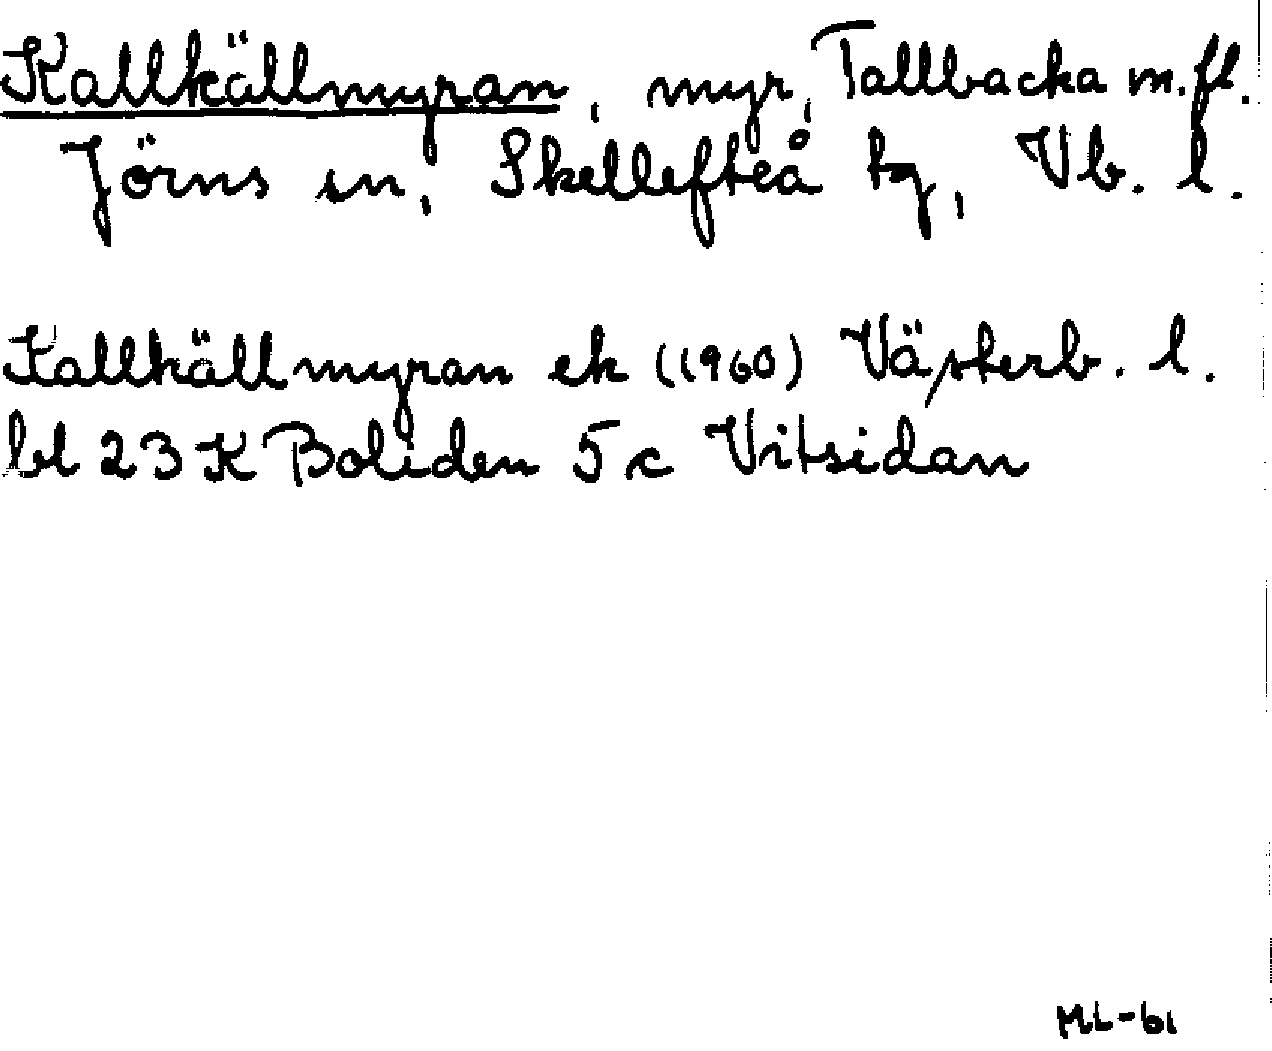 Kallkällmyran, myr, Tallbacka m.fl.
Jörns sn, Skellefteå tg, Vb. l.
Kallkällmyran ek (1960) Västerb. l.
bl 23 K Boliden 5 c Vitsidan
ML-61